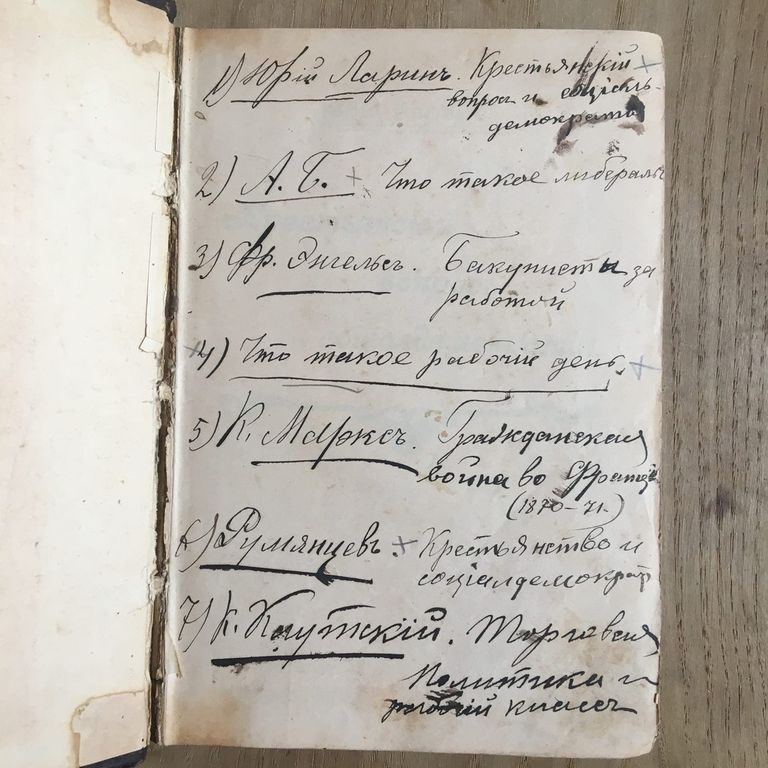 1) Юрій Ларинъ. Крестьянскій +
вопросъ и соціаль-
демократія
2) А. Б. + Что такое либералы
3) Фр. Энгельсъ. Бакунисты за
работой
4) Что такое рабочій день. +
5) К. Марксъ. Гражданская
война во Франціи
(1870–71.)
6) Румянцевъ. + Крестьянство и
соціалдемократ
7) К. Каутскій. Торговая
политика и
рабочій классъ